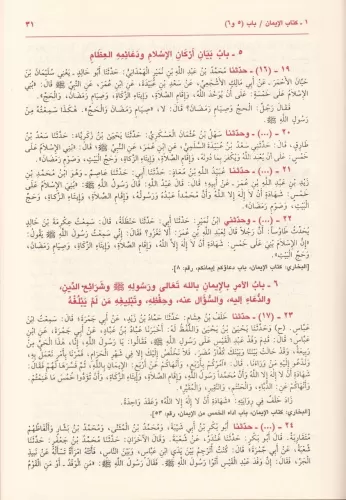 ١ ـ كتاب الإيمان / باب (٥ و٦)
٣١
٥ ـ بابُ بَيَانِ أَرْكَانِ الإِسْلَامِ وَدَعَائِمِهِ العِظَامِ
١٩ ـ (١٦) ـ حدّثنا مُحَمَّدُ بْنُ عَبْدِ اللَّهِ بْنِ نُمَيْرٍ الْهَمْدَانِيُّ: حَدَّثَنَا أَبُو خَالِدٍ ـ يَعْنِي سُلَيْمَانَ بْنَ
حَيَّانَ الأَحْمَرَ ـ عَنْ أَبِي مَالِكٍ الأَشْجَعِيِّ، عَنْ سَعْدِ بْنِ عُبَيْدَةَ، عَنِ ابْنِ عُمَرَ، عَنِ النَّبِيِّ ﷺ قَالَ: «بُنِيَ
الإِسْلَامُ عَلَى خَمْسَةٍ: عَلَى أَنْ يُوَحَّدَ اللَّهُ، وَإِقَامِ الصَّلَاةِ، وَإِيتَاءِ الزَّكَاةِ، وَصِيَامِ رَمَضَانَ، وَالْحَجِّ».
فَقَالَ رَجُلٌ: الْحَجِّ وَصِيَامِ رَمَضَانَ؟ قَالَ: لَا، «صِيَامِ رَمَضَانَ وَالْحَجِّ». هٰكَذَا سَمِعْتُهُ مِنْ
رَسُولِ اللَّهِ ﷺ.
٢٠ ـ (...) ـ وحدّثنا سَهْلُ بْنُ عُثْمَانَ الْعَسْكَرِيُّ: حَدَّثَنَا يَحْيَىٰ بْنُ زَكَرِيَّاءَ: حَدَّثَنَا سَعْدُ بْنُ
طَارِقٍ، قَالَ: حَدَّثَنِي سَعْدُ بْنُ عُبَيْدَةَ السُّلَمِيُّ، عَنِ ابْنِ عُمَرَ، عَنِ النَّبِيِّ ﷺ قَالَ: «بُنِيَ الإِسْلَامُ عَلَى
خَمْسٍ: عَلَى أَنْ يُعْبَدَ اللَّهُ وَيُكْفَرَ بِمَا دُونَهُ، وَإِقَامِ الصَّلَاةِ، وَإِيتَاءِ الزَّكَاةِ، وَحَجِّ الْبَيْتِ،
وَصَوْمِ رَمَضَانَ».
٢١ ـ (...) ـ حدّثنا عُبَيْدُ اللَّهِ بْنُ مُعَاذٍ: حَدَّثَنَا أَبِي: حَدَّثَنَا عَاصِمٌ ـ وَهُوَ ابْنُ مُحَمَّدِ بْنِ
زَيْدِ بْنِ عَبْدِ اللَّهِ بْنِ عُمَرَ ـ عَنْ أَبِيهِ؛ قَالَ: قَالَ عَبْدُ اللَّهِ: قَالَ رَسُولُ اللَّهِ ﷺ: «بُنِيَ الإِسْلَامُ عَلَى
خَمْسٍ: شَهَادَةِ أَنْ لَا إِلٰهَ إِلَّا اللَّهُ وَأَنَّ مُحَمَّدًا عَبْدُهُ وَرَسُولُهُ، وَإِقَامِ الصَّلَاةِ، وَإِيتَاءِ الزَّكَاةِ، وَحَجِّ
الْبَيْتِ، وَصَوْمِ رَمَضَانَ».
٢٢ ـ (...) ـ وحدّثني ابْنُ نُمَيْرٍ: حَدَّثَنَا أَبِي: حَدَّثَنَا حَنْظَلَةُ، قَالَ: سَمِعْتُ عِكْرِمَةَ بْنَ خَالِدٍ
يُحَدِّثُ طَاوُسًا: أَنَّ رَجُلًا قَالَ لِعَبْدِ اللَّهِ بْنِ عُمَرَ: أَلَا تَغْزُو؟ فَقَالَ: إِنِّي سَمِعْتُ رَسُولَ اللَّهِ ﷺ يَقُولُ:
«إِنَّ الإِسْلَامَ بُنِيَ عَلَى خَمْسٍ: شَهَادَةِ أَنْ لَا إِلٰهَ إِلَّا اللَّهُ، وَإِقَامِ الصَّلَاةِ، وَإِيتَاءِ الزَّكَاةِ، وَصِيَامِ رَمَضَانَ،
وَحَجِّ الْبَيْتِ».
[البخاري: كتاب الإيمان، باب دعاؤكم إيمانكم، رقم: ٨].
٦ ـ بابُ الأمرِ بالإيمانِ بالله تَعَالى وَرَسُولِهِ ﷺ وشرائعِ الدِّينِ،
والدُّعَاءِ إليه، والسُّؤَالِ عنه، وحِفْظِهِ، وتَبْلِيغِهِ مَنْ لَمْ يَبْلُغْهُ
٢٣ ـ (١٧) ـ حدّثنا خَلَفُ بْنُ هِشَامٍ: حَدَّثَنَا حَمَّادُ بْنُ زَيْدٍ، عَنْ أَبِي جَمْرَةَ؛ قَالَ: سَمِعْتُ ابْنَ
عَبَّاسٍ. (ح) وَحَدَّثَنَا يَحْيَىٰ بْنُ يَحْيَىٰ وَاللَّفْظُ لَهُ: أَخْبَرَنَا عَبَّادُ بْنُ عَبَّادٍ، عَنْ أَبِي جَمْرَةَ، عَنِ ابْنِ
عَبَّاسٍ؛ قَالَ: قَدِمَ وَفْدُ عَبْدِ الْقَيْسِ عَلَى رَسُولِ اللَّهِ ﷺ، فَقَالُوا: يَا رَسُولَ اللَّهِ! إِنَّا، هٰذَا الْحَيَّ مِنْ
رَبِيعَةَ، وَقَدْ حَالَتْ بَيْنَنَا وَبَيْنَكَ كُفَّارُ مُضَرَ، فَلَا نَخْلُصُ إِلَيْكَ إِلَّا فِي شَهْرِ الْحَرَامِ، فَمُرْنَا بِأَمْرٍ نَعْمَلُ بِهِ،
وَنَدْعُو إِلَيْهِ مَنْ وَرَاءَنَا. قَالَ: «آمُرُكُمْ بِأَرْبَعٍ، وَأَنْهَاكُمْ عَنْ أَرْبَعٍ: الإِيمَانِ بِاللَّهِ (ثُمَّ فَسَّرَهَا لَهُمْ فَقَالَ:
شَهَادَةِ أَنْ لَا إِلٰهَ إِلَّا اللَّهُ وَأَنَّ مُحَمَّدًا رَسُولُ اللَّهِ) وَإِقَامِ الصَّلَاةِ، وَإِيتَاءِ الزَّكَاةِ، وَأَنْ تُؤَدُّوا خُمُسَ مَا غَنِمْتُمْ.
وَأَنْهَاكُمْ عَنِ: الدُّبَّاءِ، وَالْحَنْتَمِ، وَالنَّقِيرِ، وَالْمُقَيَّرِ».
زَادَ خَلَفٌ فِي رِوَايَتِهِ: شَهَادَةِ أَنْ لَا إِلٰهَ إِلَّا اللَّهُ» وَعَقَدَ وَاحِدَةً.
[البخاري: كتاب الإيمان، باب أداء الخمس من الإيمان، رقم: ٥٣].
٢٤ ـ (...) ـ حدّثنا أَبُو بَكْرِ بْنُ أَبِي شَيْبَةَ، وَمُحَمَّدُ بْنُ الْمُثَنَّى، وَمُحَمَّدُ بْنُ بَشَّارٍ وَأَلْفَاظُهُمْ
مُتَقَارِبَةٌ. قَالَ أَبُو بَكْرٍ: حَدَّثَنَا غُنْدَرٌ، عَنْ شُعْبَةَ. وَقَالَ الآخَرَانِ: حَدَّثَنَا مُحَمَّدُ بْنُ جَعْفَرٍ: حَدَّثَنَا
شُعْبَةُ، عَنْ أَبِي جَمْرَةَ؛ قَالَ: كُنْتُ أُتَرْجِمُ بَيْنَ يَدَيِ ابْنِ عَبَّاسٍ، وَبَيْنَ النَّاسِ، فَأَتَتْهُ امْرَأَةٌ تَسْأَلُهُ عَنْ نَبِيذِ
الْجَرِّ، فَقَالَ: إِنَّ وَفْدَ عَبْدِ الْقَيْسِ أَتَوْا رَسُولَ اللَّهِ ﷺ، فَقَالَ رَسُولُ اللَّهِ ﷺ: «مَنِ الْوَفْدُ ـ أَوْ مَنِ الْقَوْمُ